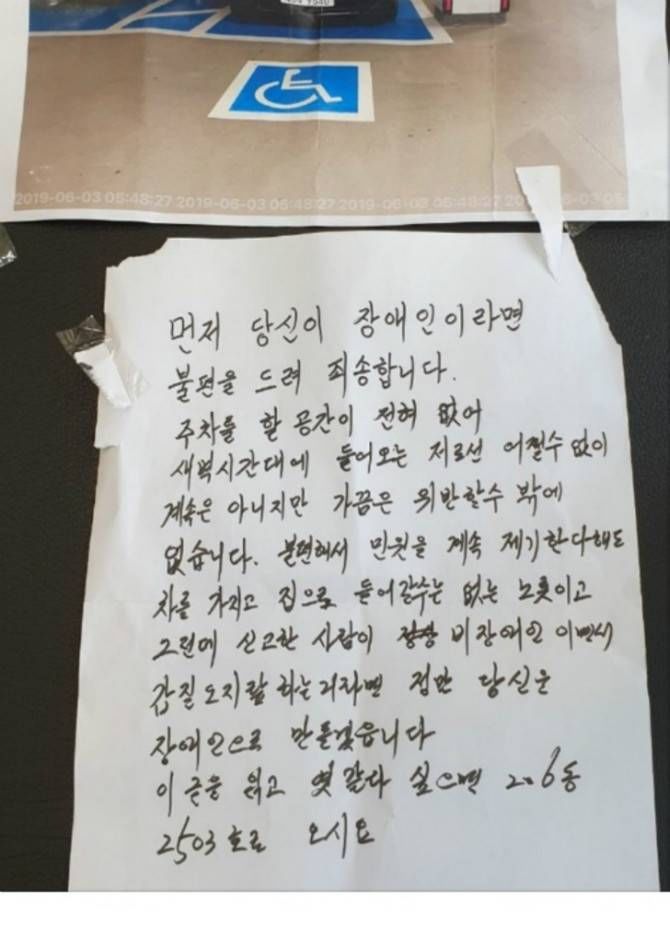 2019-06-03 05:48:27 2019-06-03 05:48:27 2019-06-03 05:48:27 2019-06-03 05
먼저 당신이 장애인이라면
불편을 드려 죄송합니다.
주차를 할 공간이 전혀 없어
새벽시간대에 들어오는 저로선 어쩔수 없이
계속은 아니지만 가끔은 위반할수 밖에
없습니다. 불편해서 민원을 계속 제기한다해도
차를 가지고 집으로 들어갈수는 없는 노릇이고
그런데 신고한 사람이 비장애인 이면서
갑질 도지랄 하는거라면 정말 당신은
장애인으로 만들겠습니다
이 글을 읽고 엿 같다 싶으면 206동
2503호로 오시요